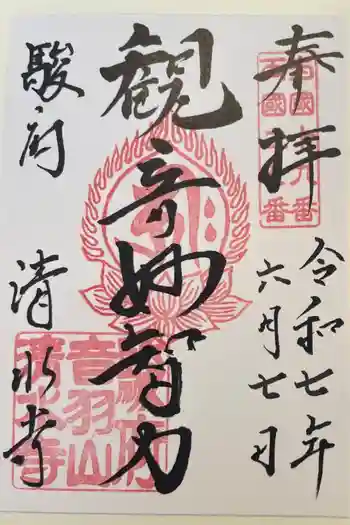 奉拝
令和七年
六月七日
観奇妙智力
駿府
清水寺
音羽山
清水寺